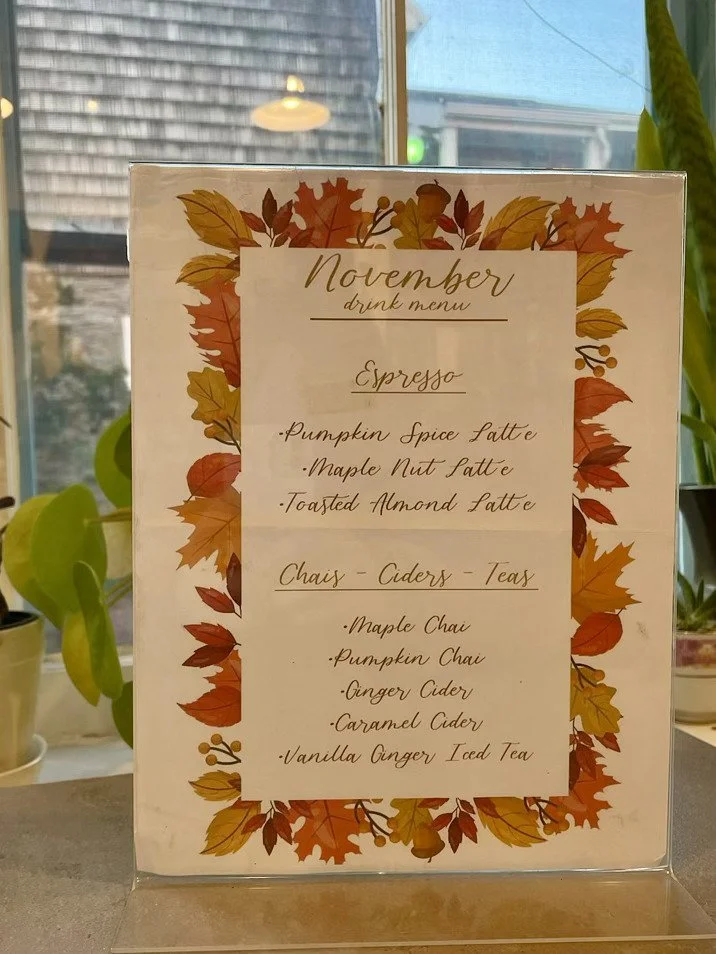 November
drink menu
Espresso
·Pumpkin Spice Latte
·Maple Nut Latte
·Toasted Almond Latte
Chais - Ciders - Teas
·Maple Chai
·Pumpkin Chai
·Ginger Cider
·Caramel Cider
·Vanilla Ginger Iced Tea